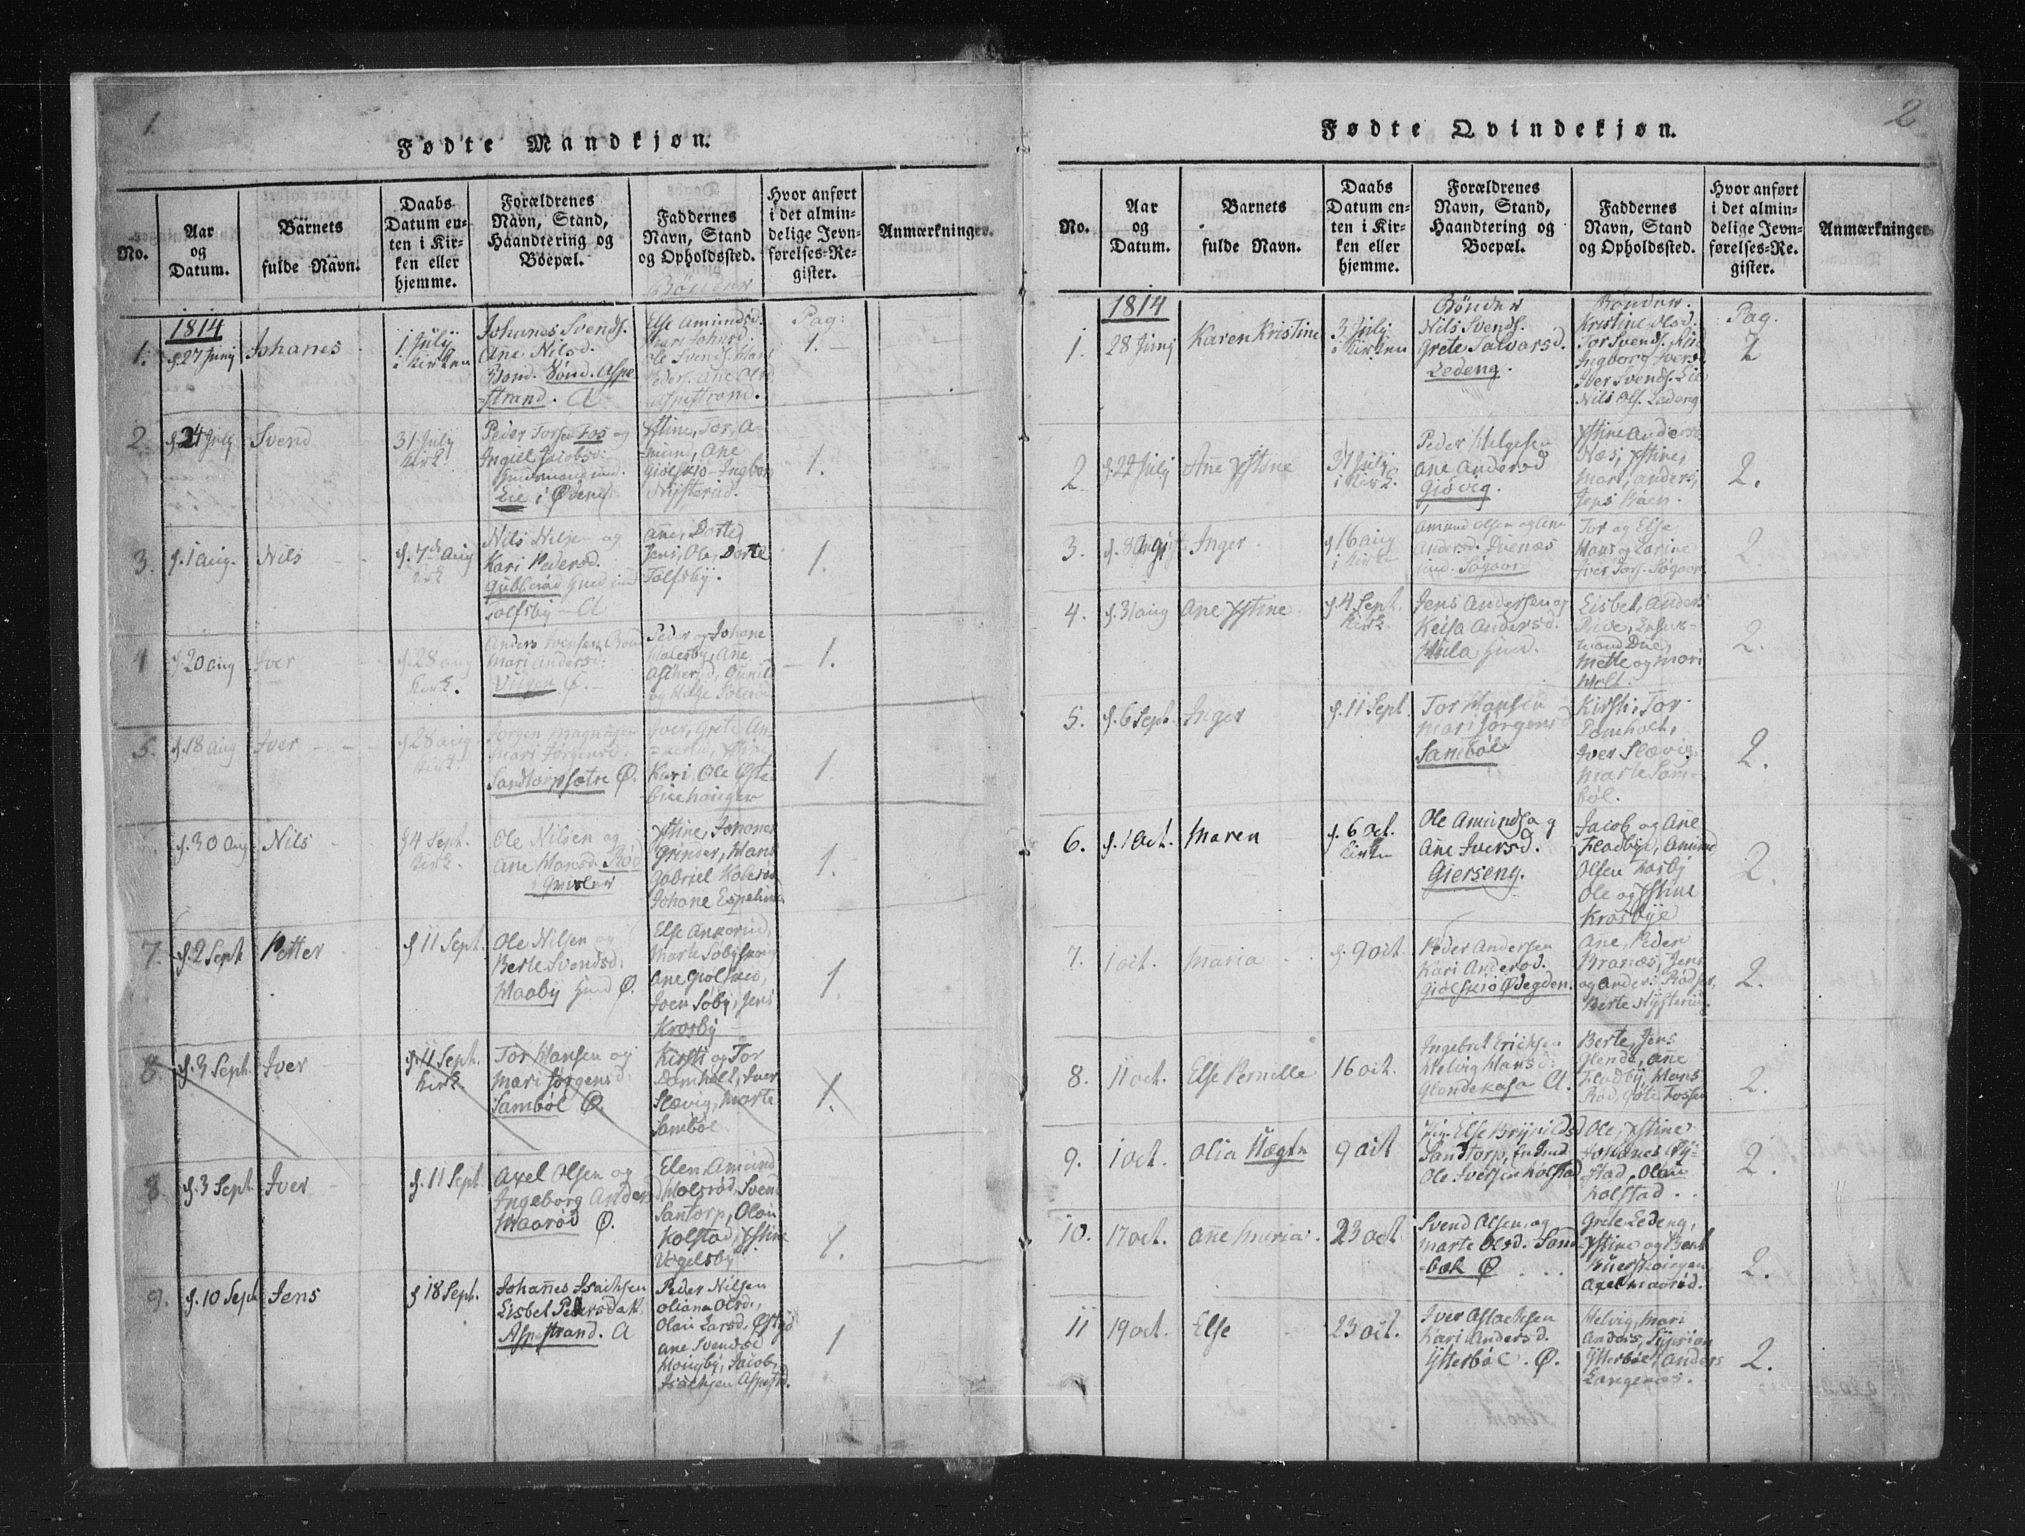 1.
Fødte Mandkjøn.
No.
Aar
og
Datum.
Barnets
fulde Navn.
Daabs
Datum en-
ten i Kir-
ken eller
hjemme.
Forældrenes
Navn, Stand,
Haandtering og
Boepæl.
Faddernes
Navn, Stand
og Opholdssted.
Hvor anført
i det almin-
delige Jevn-
førelses-Re-
gister.
Anmærkninger.
Bönder
1814
Pag:
1.
f. 27 Junij
Johanes
1 July
i Kirken
Johanes Svends.
Ane Nilsd.
Bond. Sönd. Aspe
strand. A
Else Amundsd.
Ole Svends. Hans
Peders. Ane Olsd.
Aspestrand.
1.
2.
f. 24 July
Svend
31 July
Kirk.
Peder Torsen Fos og
Ingiel Jacobsd:
Eie i Ødenes
Xstine, Tor, A-
mun, Ane
Giölskiö Ingbor
Nysterud.
1.
3.
f. 1 Aug.
Nils
f. 7de Aug
Kirk
Nils Nilsen og
Kari Pedersd.
Gubberöd Hmd und
Tolfsby A
Ane, Dorte,
Jens, Ole, Dorte
Tolfsby.
1.
4
f. 20 aug
Iver
f. 28 aug
Kirk.
Anders Svensen Bon
Mari Andersd:
Vilgen Ø.
Peder og Johane
Halesby, Ane
og Helge Solerö
1.
5.
f. 18 aug
Iver
f. 28 aug
Kirk.
Jörgen Magnusen
Mari Jörgensd:
Sandtorpsætre Ø.
Iver, Grete An-
Kari, Ole Øste-
1.
f. 30 Aug
Nils
f 4 Sept.
Kirk.
Ole Nilsen og
Ane Hansd. Röd
Xstine, Johanes
Grinder, Hans
Gabriel Koleröd
Johane Espelund
1.
7.
f. 2 Sept
Petter
f 11 Sept.
Ole Nilsen og
Berte Svendsd:
Haaby Hmd Ø.
Else Ankerud,
Marte Söby
Ane Giölsiö,
Iven Söby, Jens
Krosby
1.
8.
f. 3 Sept.
Iver
f. 11 Sept.
Kirk
Tor Hansen og
Mari Jörgensd:
Samböl Ø.
Kirsti og Tor
Damholt, Iver
Slævig, Marte
Samböl
1.
8.
f. 3 Sept.
Iver
f. 11 Sept
Axel Olsen og
Ingeborg Anders
Haaröd Ø.
Elen, Amund
Holsröd, Svend
Santorp, Olau
Kolstad, Xstine
Vogelsby
1.
9.
f. 10 Sept
Jens
f 18 Sept.
Johanes Isachsen
Lisbet Pedersdat.
Aspestrand. A
Peder Nilsen
Oliana Olsd.,
Olau Larsd. Østgd
Ane Svendsd
Hougby, Jacob
Isachsen Aspestrd.
1
2
Fødte Qvindekjøn.
No.
Aar
og
Datum.
Barnets
fulde Navn.
Daabs
Datum en-
ten i Kir-
ken eller
hjemme.
Forældrenes
Navn, Stand,
Haandtering og
Boepæl.
Faddernes
Navn, Stand
og Opholdssted.
Hvor anført
i det almin-
delige Jevn-
førelses-Re-
gister.
Anmærkninger
1814
Bönder
Bönder.
Pag.
1.
28 Junij
Karen Kristine
3 July
i Kirken
Nils Svends.
Grete Talvarsd.
Ledeng.
Kristine Olsd.
Tor Svends. Eie
Ingborg Iversd
Iver Svends. Eie
Nils Ols. Ledeng
2
2.
f. 22 July
Ane Xstine
31 July
i Kirk.
Peder Helgesen
Ane Andersd
Giövig.
Xstine Anders
Næs, Xstine,
Mari, Anders,
Jens Haen.
2.
3.
f. 8 August
Inger
f 16 aug
i Kirken
Amund Olsen og Ane
Andersd. Duenæs
und. Sögaar
Tor og Else
Hans og Karine
Iver Tors. Sögaar
2.
4.
f. 31 aug
Ane Xstine
f 4 Sept.
Kirk.
Jens Andersen og
Keisa Andersd.
Hula Hmd.
Lisbet, Anders
Rive, Enke-
mand Due,
Mette og Mari
Holt.
2.
5.
f. 6 Sept.
Inger
f. 11 Sept.
Tor Hansen
Mari Jörgensd
Samböl
Kirsti, Tor
Damholt,
Iver Slævig
Marte Sam-
böl.
2.
6.
f. 1 Oct.
Maren
f. 6 Oct.
Kirken
Ole Amunds og
Ane Iversd.
Gierseng.
Jacob og Ane
Fladbye, Amund
Olsen Kosby
Ole og Xstine
Krosbye
2.
7.
1 Oct.
Maria
f. 9 Oct.
Peder Andersen
Kari Andersd.
Giölskiö Ødegden.
Ane, Peder
Branæs, Jens
og Anders Rödser,
Berte Nysterud
2.
8.
11 Oct.
Else Pernille
16 Oct.
Ingebret Erichsen
Helvig Hansd:
Glendekasa A.
Berte, Jens
Glende, Ane
Fladby, Hans
2.
9.
1 Oct.
Olia Uægte
9 Oct
Pig. Else Brynildsd
Santorp, En Und
Ole Iversen Kolstad
Ole, Xstine
Johanes By-
stad, Olau
Kolstad.
2.
10.
17 Oct.
Ane Maria
23 Oct
Svend Olsen og
Marte Olsd. Sand
bæk Ø
Grete Ledeng,
Xstine og Bent
Buerskougen
Axel Maaröd.
2.
11
19 Oct.
Else
23 Oct.
Iver Aslachsen
Kari Andersd.
Ytterböl. Ø.
Helvig, Mari
Anders, Syverin
Ytterböl, Anders
Langenæs.
2.